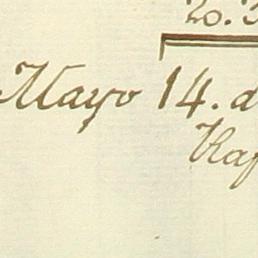 20.3
Mayo 14. d
Raf